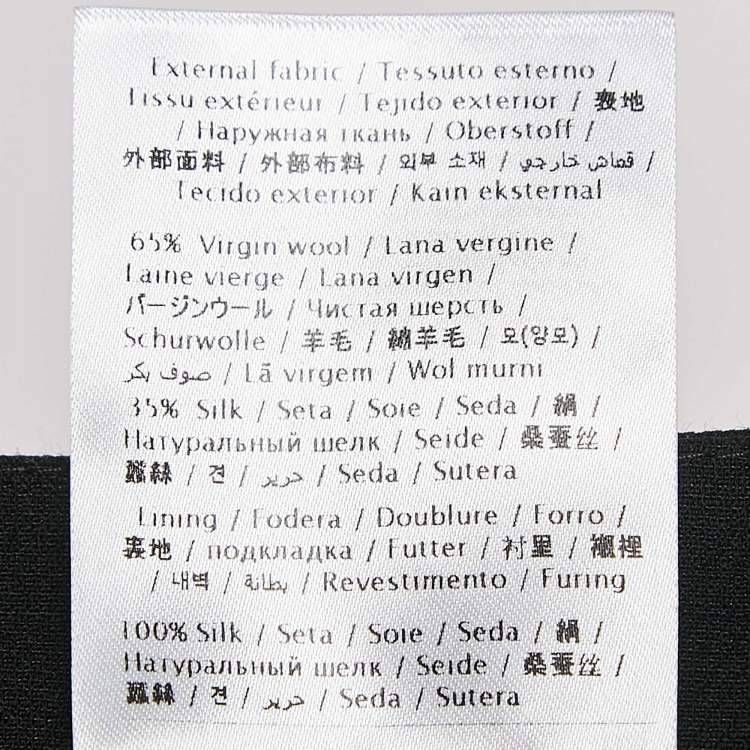 External fabric / Tessuto esterno /
Tissu extérieur / Tejido exterior / 表地
/ Наружная ткань / Oberstoff /
外部面料 / 外部布料 / 외부 소재 / قماش خارجي /
Tecido exterior / Kain eksternal
65% Virgin wool / Lana vergine /
Laine vierge / Lana virgen /
バージンウール / Чистая шерсть /
Schurwolle / 羊毛 / 純羊毛 / 모(양모) /
صوف بكر / Lã virgem / Wol murni
35% Silk / Seta / Soie / Seda / 絹 /
Натуральный шелк / Seide / 桑蚕丝 /
蠶絲 / 견 / حرير / Seda / Sutera
Lining / Fodera / Doublure / Forro /
裏地 / подкладка / Futter / 衬里 / 襯裡
/ 내벽 / بطانة / Revestimento / Furing
100% Silk / Seta / Soie / Seda / 絹 /
Натуральный шелк / Seide / 桑蚕丝 /
蠶絲 / 견 / حرير / Seda / Sutera